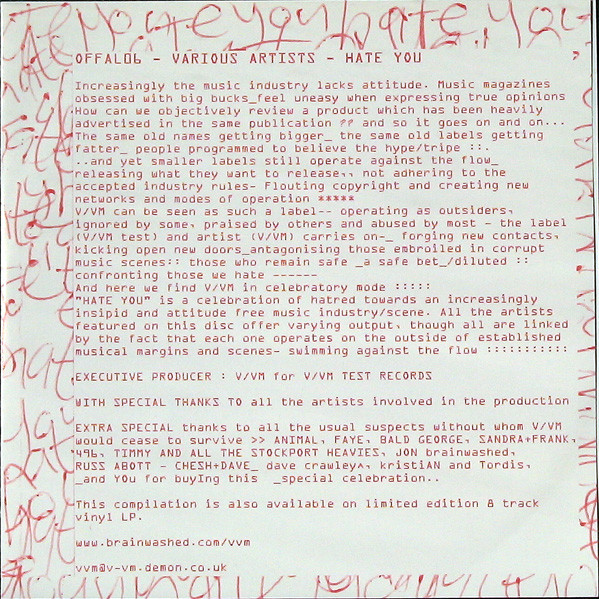 hate you hate you
OFFAL06 - VARIOUS ARTISTS - HATE YOU
Increasingly the music industry lacks attitude. Music magazines
obsessed with big bucks_feel uneasy when expressing true opinions
How can we objectively review a product which has been heavily
advertised in the same publication ?? and so it goes on and on...
The same old names getting bigger_ the same old labels getting
fatter_ people programmed to believe the hype/tripe ::.
..and yet smaller labels still operate against the flow_
releasing what they want to release,, not adhering to the
accepted industry rules- Flouting copyright and creating new
networks and modes of operation *****
V/VM can be seen as such a label-- operating as outsiders,
ignored by some, praised by others and abused by most - the label
(V/VM test) and artist (V/VM) carries on-_ forging new contacts,
kicking open new doors_antagonising those embroiled in corrupt
music scenes:: those who remain safe _a safe bet_/diluted ::
confronting those we hate ------
And here we find V/VM in celebratory mode :::::
"HATE YOU" is a celebration of hatred towards an increasingly
insipid and attitude free music industry/scene. All the artists
featured on this disc offer varying output, though all are linked
by the fact that each one operates on the outside of established
musical margins and scenes- swimming against the flow :::::::::::
EXECUTIVE PRODUCER : V/VM for V/VM TEST RECORDS
WITH SPECIAL THANKS TO all the artists involved in the production
EXTRA SPECIAL thanks to all the usual suspects without whom V/VM
would cease to survive >> ANIMAL, FAYE, BALD GEORGE, SANDRA+FRANK,
'496, TIMMY AND ALL THE STOCKPORT HEAVIES, JON brainwashed,
RUSS ABOTT - CHESH+DAVE_ dave crawley^, kristiAN and Tordis,
_and YOu for buyIng this _special celebration..
This compilation is also available on limited edition 8 track
vinyl LP.
www.brainwashed.com/vvm
vvm@v-vm.demon.co.uk